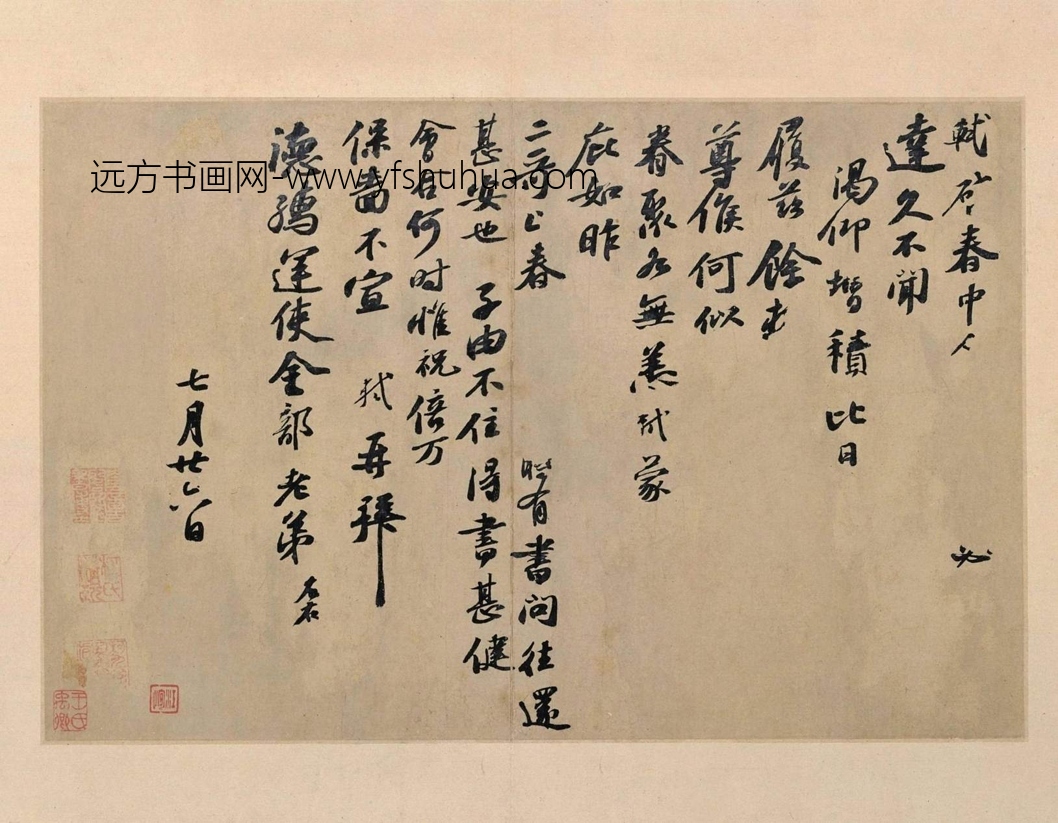 軾啓春中人必
達久不聞
渴仰增積比日
履茲餘
尊候何似
眷聚各無恙軾蒙
庇如昨
二哥上春時有書問往還
甚安也子由不住得書甚健
會合何時惟祝倍万
保嗇不宣軾再拜
德孺運使金部老弟
七月廿六日
远方书画网-www.yfshuhua.com
王氏禹卿